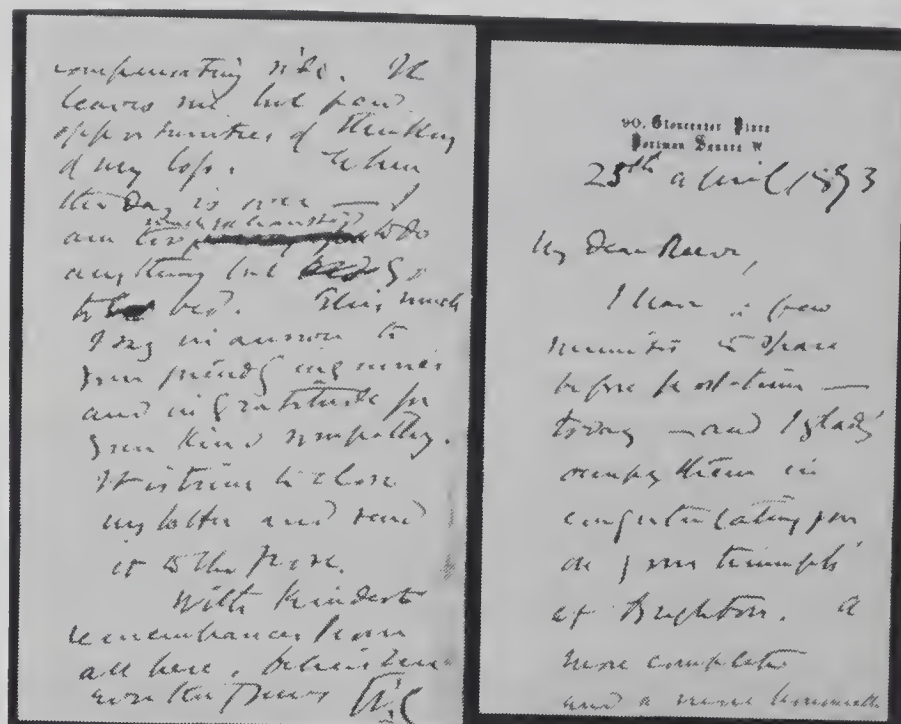 compensating side. It
leaves me but few
opportunities of thinking
of my loss. When
the day is over — I
am too
much exhausted
to do
anything but go
to bed. Thus much
I say in answer to
your friendly inquiries
and in gratitude for
your kind sympathy.
It is time to close
my letter and send
it to the
With kindest
remembrances from
all here, believe me
WC
90, Gloucester Place
Portman Square W
25th April 1873
My Dear
I have a few
minutes to spare
before post-time —
today — and I gladly
occupy them in
congratulating you
on your triumph
at Brighton. A
more complete
and a more